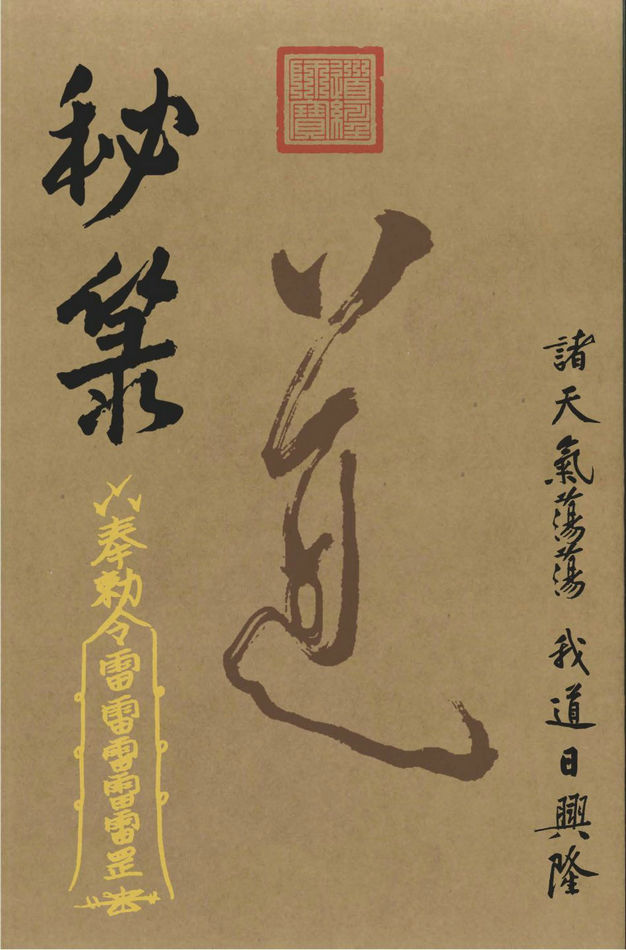 諸天氣蕩蕩 我道日興隆
道經
師寶
道
秘箓
奉勅令雷雷雷雷雷罡